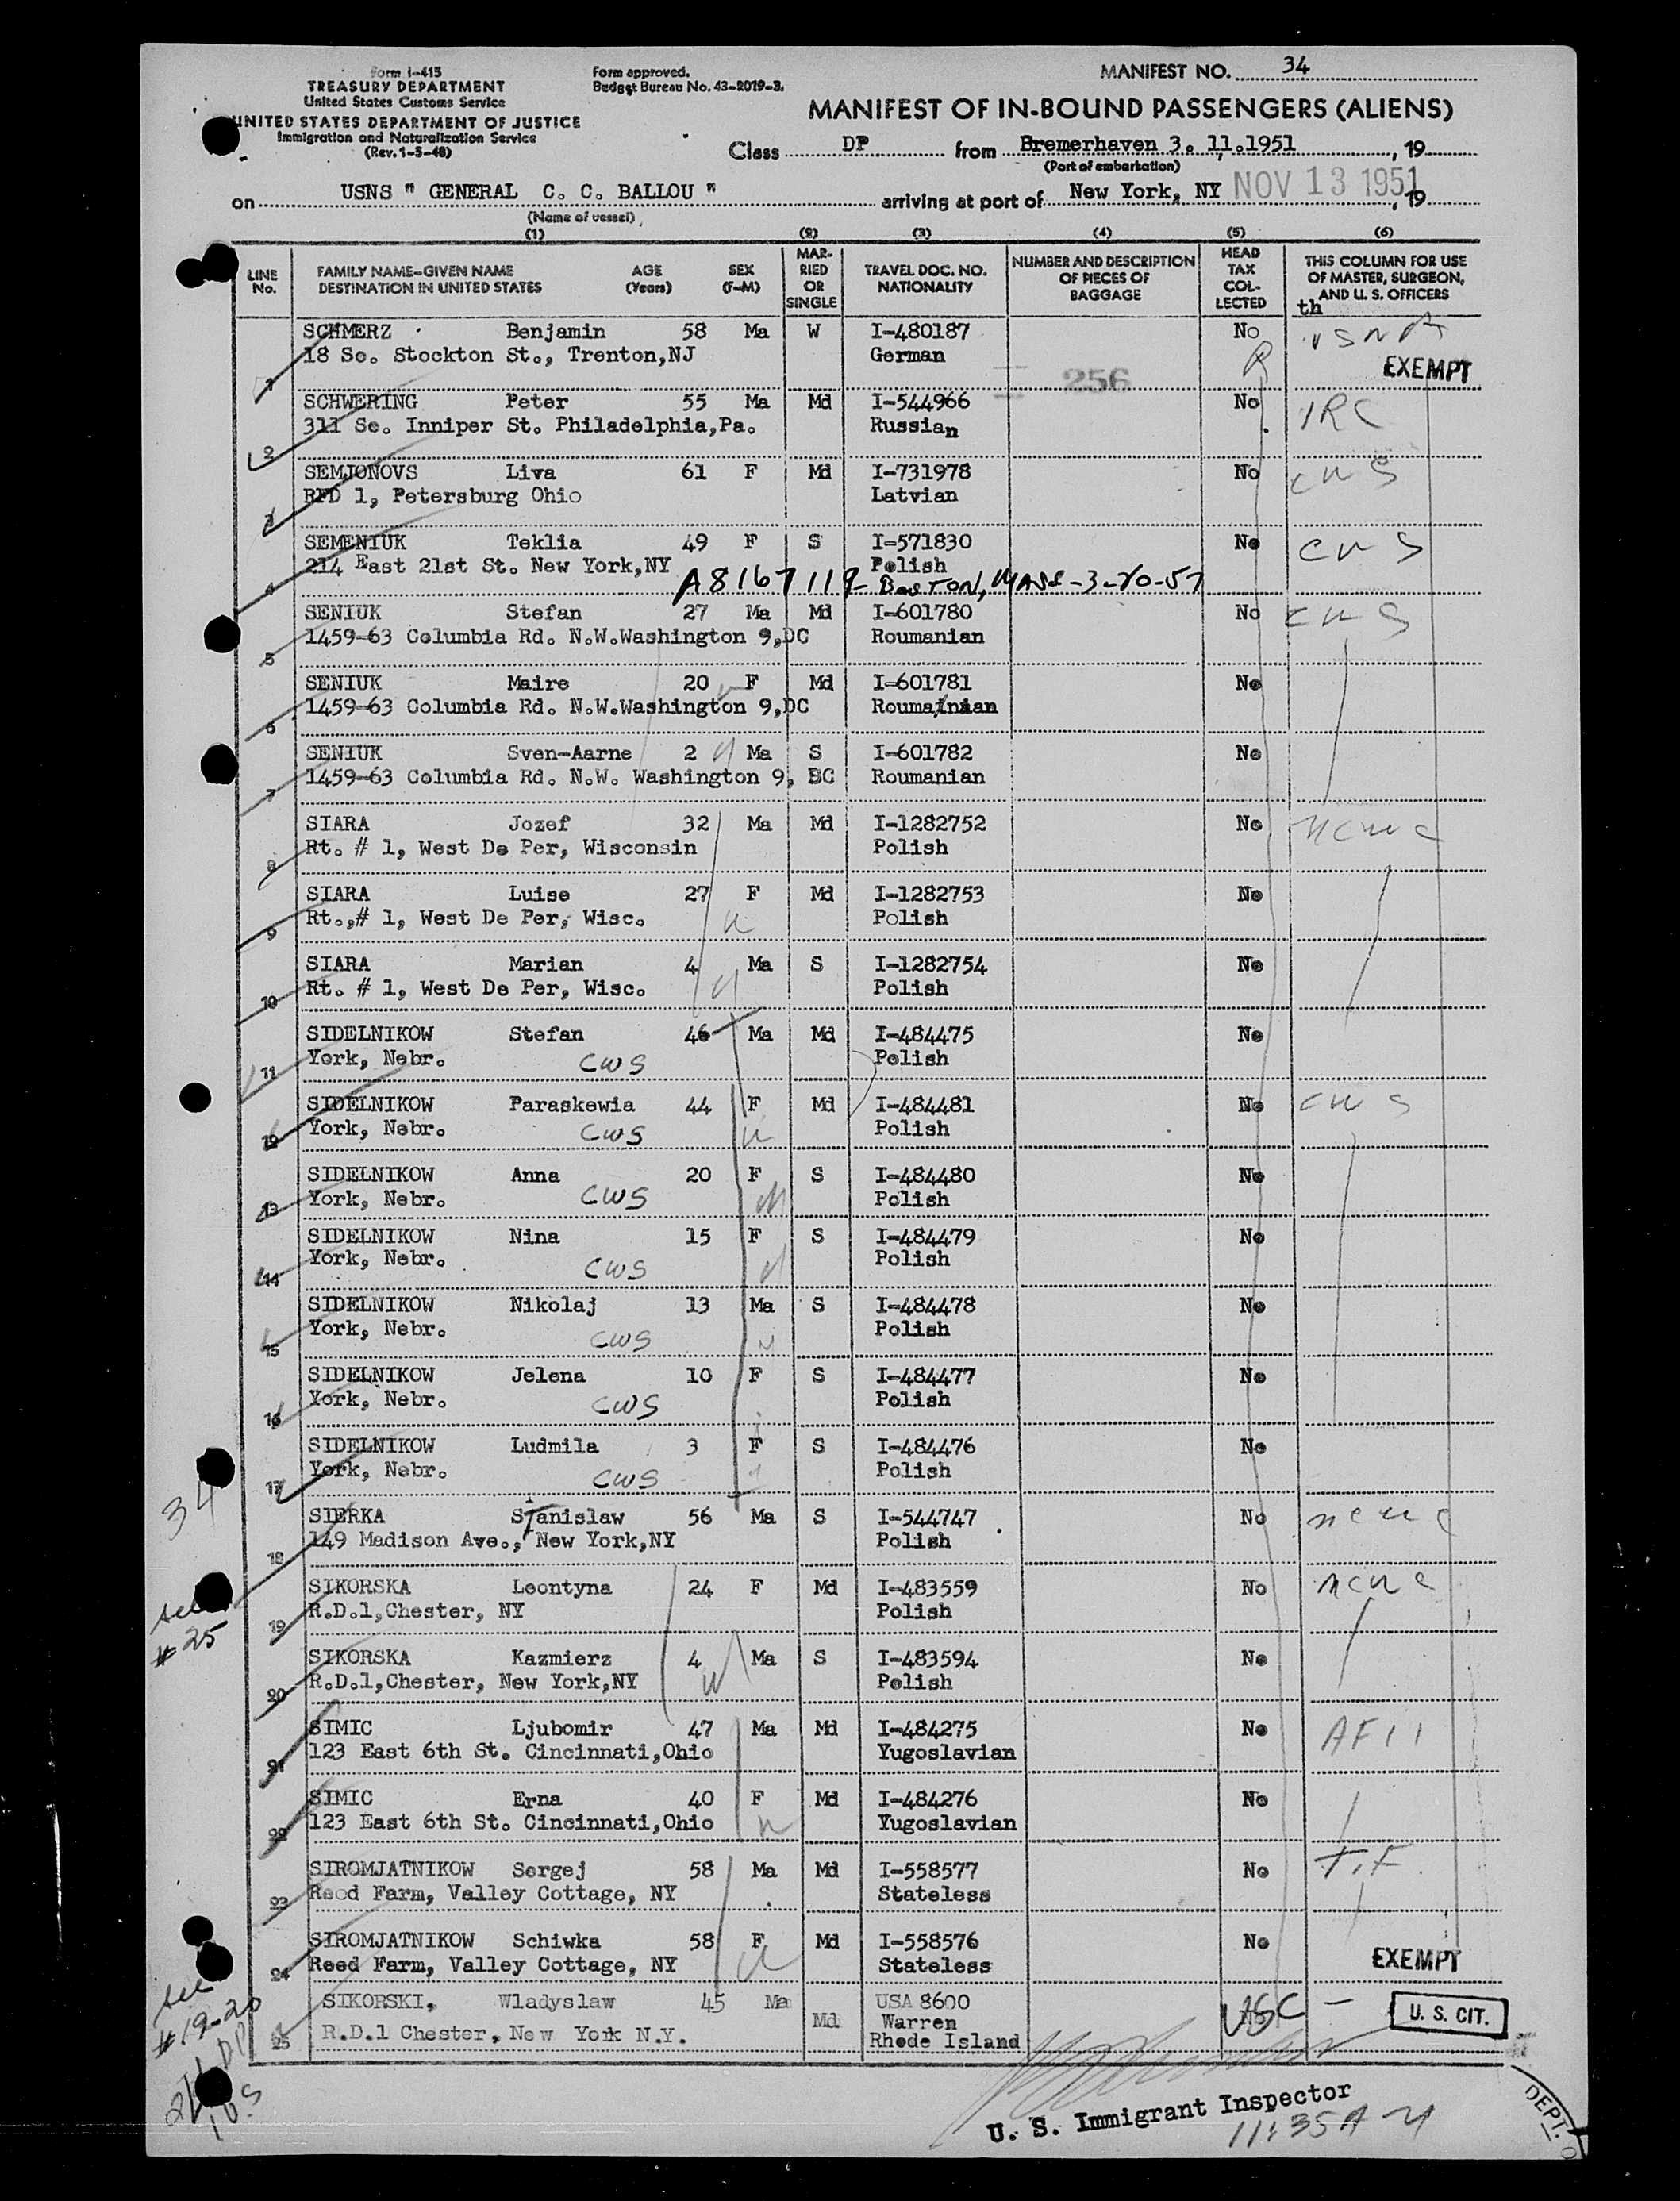 Form I-415
TREASURY DEPARTMENT
United States Customs Service
UNITED STATES DEPARTMENT OF JUSTICE
Immigration and Naturalization Service
(Rev. 1-5-48)
Form approved.
Budget Bureau No. 43-2019-3.
MANIFEST NO. 34
MANIFEST OF IN-BOUND PASSENGERS (ALIENS)
Class DP from Bremerhaven 3. 11.1951, 19
(Port of embarkation)
on USNS " GENERAL C. C. BALLOU " arriving at port of New York, NY NOV 13 1951, 19
(Name of vessel)
(1) (2) (3) (4) (5) (6)
LINE No. FAMILY NAME-GIVEN NAME DESTINATION IN UNITED STATES AGE (Years) SEX (F-M) MARRIED OR SINGLE TRAVEL DOC. NO. NATIONALITY NUMBER AND DESCRIPTION OF PIECES OF BAGGAGE HEAD TAX COLLECTED THIS COLUMN FOR USE OF MASTER, SURGEON, AND U. S. OFFICERS
th
SCHMERZ Benjamin 58 Ma W I-480187 No USNA
18 So. Stockton St., Trenton,NJ German EXEMPT
1 256
SCHWERING Peter 55 Ma Md I-544966 No IRC
311 So. Inniper St. Philadelphia,Pa. Russian
2
SEMJONOVS Liva 61 F Md I-731978 No CWS
RFD 1, Petersburg Ohio Latvian
3
SEMENIUK Teklia 49 F S I-571830 No CWS
214 East 21st St. New York,NY Polish
4 A8167119- BOSTON, MASS-3-20-57
SENIUK Stefan 27 Ma Md I-601780 No CWS
1459-63 Columbia Rd. N.W.Washington 9,DC Roumanian
5
SENIUK Maire 20 F Md I-601781 No
1459-63 Columbia Rd. N.W.Washington 9,DC Roumainian
6
SENIUK Sven-Aarne 2 Ma S I-601782 No
1459-63 Columbia Rd. N.W. Washington 9, DC Roumanian
7
SIARA Jozef 32 Ma Md I-1282752 No NCWC
Rt. # 1, West De Per, Wisconsin Polish
8
SIARA Luise 27 F Md I-1282753 No
Rt.,# 1, West De Per, Wisc. Polish
9
SIARA Marian 4 Ma S I-1282754 No
Rt. # 1, West De Per, Wisc. Polish
10
SIDELNIKOW Stefan 46 Ma Md I-484475 No
York, Nebr. CWS Polish
11
SIDELNIKOW Paraskewia 44 F Md I-484481 No CWS
York, Nebr. CWS Polish
12
SIDELNIKOW Anna 20 F S I-484480 No
York, Nebr. CWS Polish
13
SIDELNIKOW Nina 15 F S I-484479 No
York, Nebr. CWS Polish
14
SIDELNIKOW Nikolaj 13 Ma S I-484478 No
York, Nebr. CWS Polish
15
SIDELNIKOW Jelena 10 F S I-484477 No
York, Nebr. CWS Polish
16
SIDELNIKOW Ludmila 3 F S I-484476 No
York, Nebr. CWS Polish
17
34
SIERKA Stanislaw 56 Ma S I-544747 No NCWC
149 Madison Ave., New York,NY Polish
18
SIKORSKA Leontyna 24 F Md I-483559 No NCWC
R.D.1,Chester, NY Polish
19
see #25
SIKORSKA Kazmierz 4 Ma S I-483594 No
R.D.1,Chester, New York,NY Polish
20
SIMIC Ljubomir 47 Ma Md I-484275 No AFII
123 East 6th St. Cincinnati,Ohio Yugoslavian
21
SIMIC Erna 40 F Md I-484276 No
123 East 6th St. Cincinnati,Ohio Yugoslavian
22
SIROMJATNIKOW Sergej 58 Ma Md I-558577 No T.F.
Reed Farm, Valley Cottage, NY Stateless
23
SIROMJATNIKOW Schiwka 58 F Md I-558576 No
Reed Farm, Valley Cottage, NY Stateless EXEMPT
24
see #19-20
SIKORSKI, Wladyslaw 45 Ma Md USA 8600 USC - U. S. CIT.
R.D.1 Chester, New York N.Y. Warren
25 Rhode Island
24 DP
1 US
U. S. Immigrant Inspector
11:35 A M
DEPT. O